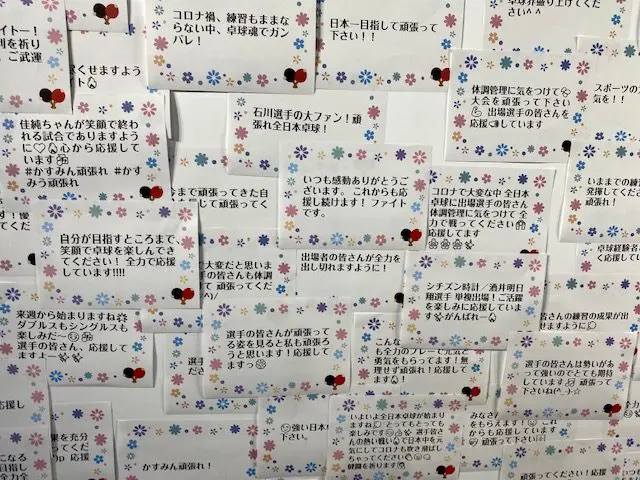 イトー！
利を祈り
、ご武運
コロナ禍、練習もままな
らない中、卓球魂でガン
バレ！
日本一目指して頑張って
下さい！！
卓球界盛り上げてくだ
さい^^
佳純ちゃんが笑顔で終わ
れる試合でありますよう
に♡心から応援して
います
#かすみん頑張れ #かす
みう頑張れ
石川選手の大ファン！頑
張れ全日本卓球！
体調管理に気をつけて
大会を頑張って下さい
出場選手の皆さんを
応援しています
スポーツの
気を！！
いつも感動ありがとうご
ざいます。これからも応
援し続けます！ファイト
です。
コロナで大変な中 全日本
卓球に出場選手の皆さん
体調管理に気をつけて 全
力で戦ってください
応援してます
いままでの練習
発揮してください
頑張れ！
自分が目指すところまで
笑顔で卓球を楽しんでき
てください！全力で応援
しています!!!!
まで頑張ってきた自
大変だと思いま
手の皆さんも体調
出場者の皆さんが全力を
出し切れますように！
シチズン時計／酒井明日
翔選手 単複出場！ご活躍
を楽しみに応援していま
すがんばれー
卓球経験者
く応援します
来週から始まりますね
ダブルスもシングルスも
楽しみだ〜
選手の皆さん、応援して
ますよー
選手の皆さんが頑張って
る姿を見ると私も頑張ろ
うと思います！応援して
まーすっ
こんな
も全力のプレーで元気と
勇気をもらってます！無
理せず頑張れ！応援して
ます
の皆さんの練習の成果が出
せますように
選手の皆さんは勢いがあ
って強いのでとても期待
しています 頑張って
下さいね(^_-)-☆
かすみん頑張れ！
強い日本
下さい。
いよいよ全日本卓球が始まり
ますね とってもとっても
楽しみです 選手皆さ
んの熱い戦いで日本中を元
気にしてコロナも吹き飛ばし
ちゃってください
健闘を祈ります
みなさ
をもらえます！これ
からも応援しています
頑張って下さい
頑張ってください！応援